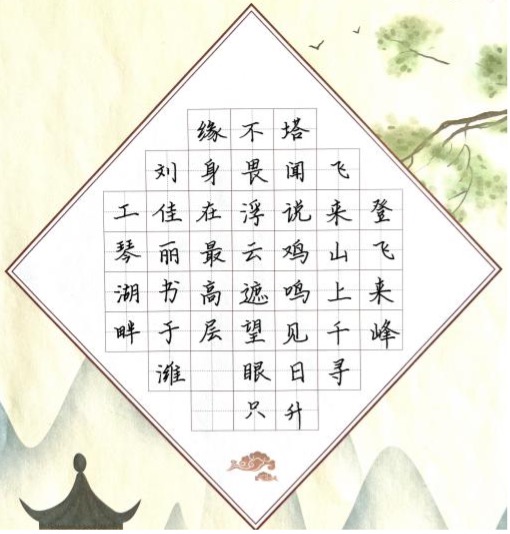 登飞来峰
飞来山上千寻
塔闻说鸡鸣见日升
不畏浮云遮望眼只
缘身在最高层
刘佳丽书于潍
工琴湖畔